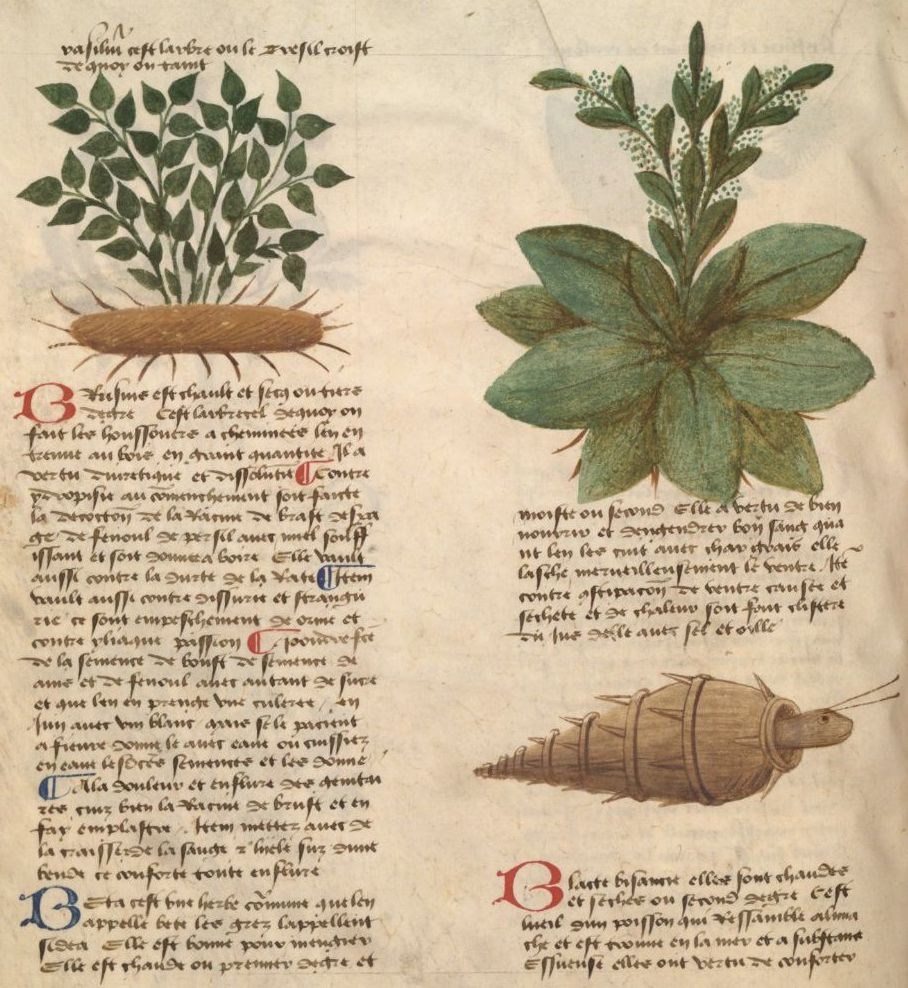 vasiliu cest larbre ou le bresil croist
de quoy on taint
BRusine est chault et secq ou tiers
degre Cest larbrecel de quoy on
fait les houssouers a cheminees len en
treuue au bois en grant quantite Il a
vertu diuretique et dissolutiue Contre
ydropisie au commenchement soit faicte
la decoction de la racine de brust
de fenoul de persil auec miel souff
issant et soit donnee a boire Elle vault
aussi contre la durte de la rate Item
vault aussi contre dissurie et strangu
rie ce sont empeschement de orine et
contre yliaque passion pouldre fce
de la semence de boust de semence de
anis et de fenoul auec autant de sucre
et que len en prenge vne culeree en
Jun auec vin blanc mais se le pacient
a fieure donne le auec eaue ou cuissiez
en eaue lesdictes semences et les donne
A la douleur et enflure des genitai
res cuis bien la racine de brust et en
fay emplastre Item mettez auec de
la craisse de la sauge et luele sur dune
bende ce conforte toute enflure
BEta cest vne herbe commune que len
appelle bete les grez lappellent
sidea Elle est bonne pour mengier
Elle est chaude ou premier degre et
moiste ou second Elle a vertu de bien
nourrir et dengendrer bon sang qua
nt len les cuit auec char grais elle
lasche merueilleusement le ventre Ite
contre constipacion de ventre causee et
sechete et de chaleur soit fait clistere
du Jus delle auec sel et oille
BLacte bisancie elles sont chaudes
et seches ou second degre Cest
lueil dun poisson qui ressamble a lima
che et est trouue en la mer et a substance
Elles ont vertu de conforter